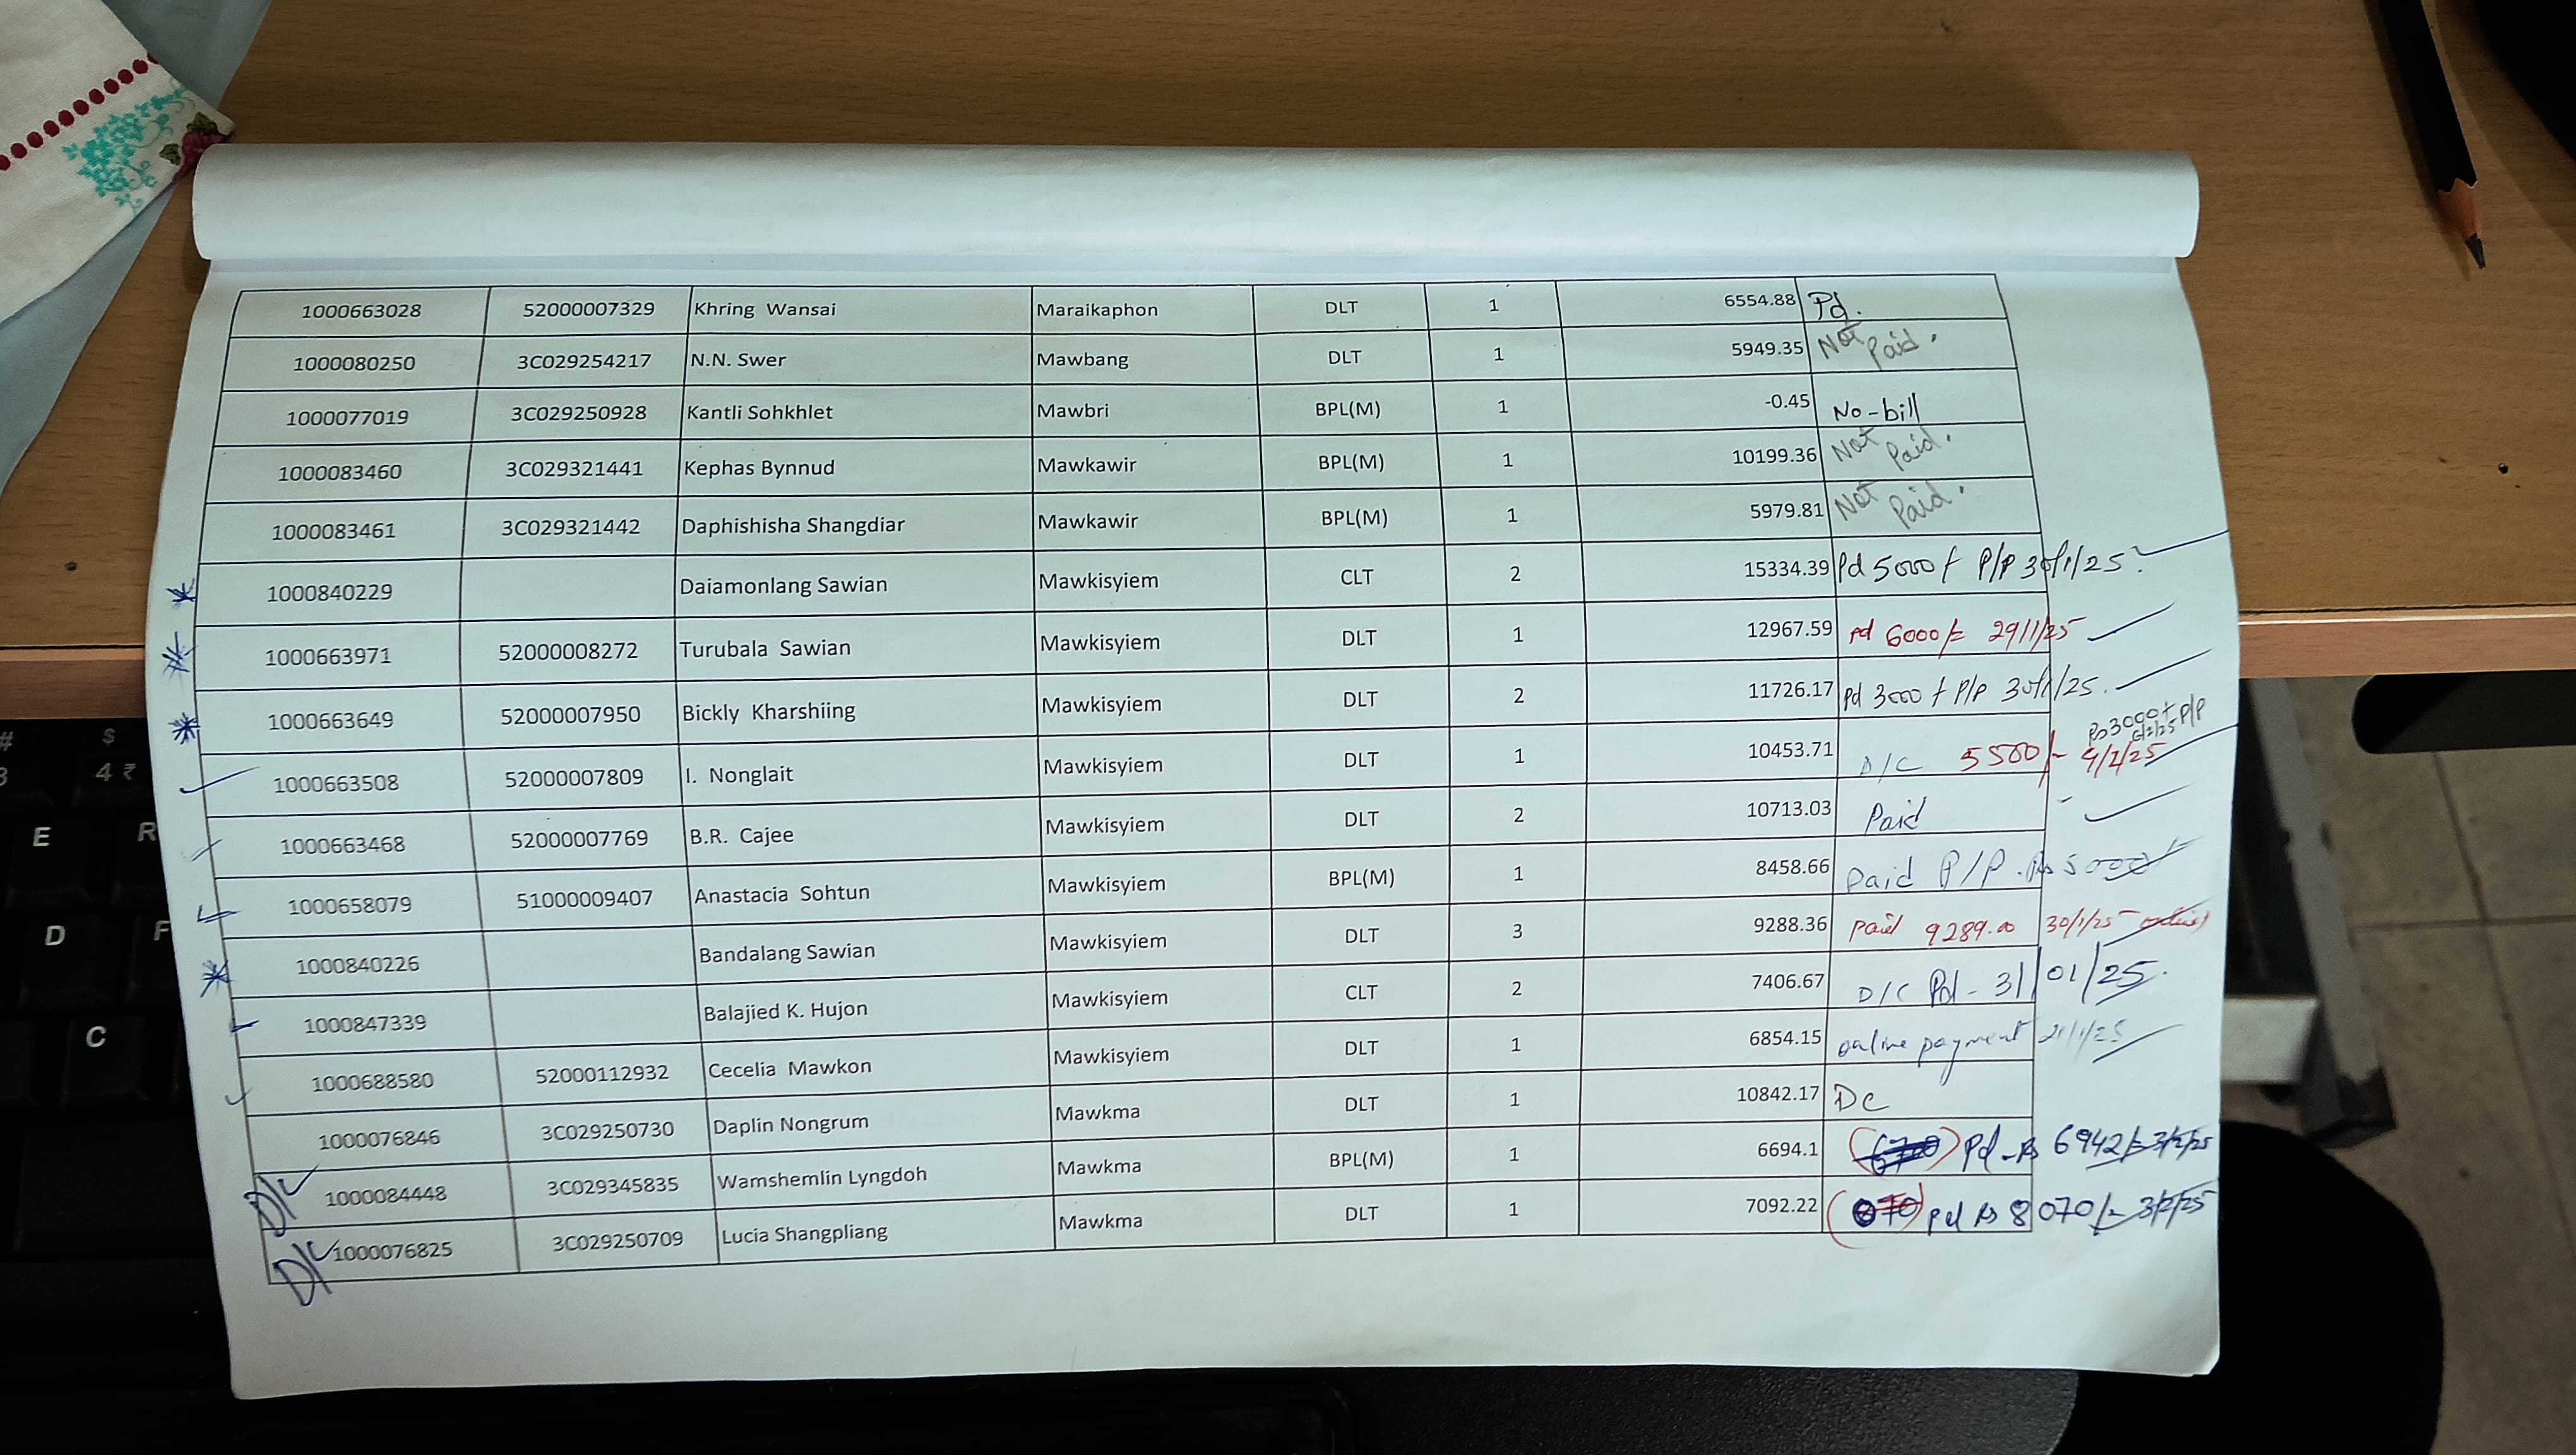 1000663028 52000007329 Khring Wansai Maraikaphon DLT 1 6554.88 Pd.
1000080250 3C029254217 N.N. Swer Mawbang DLT 1 5949.35 Not Paid.
1000077019 3C029250928 Kantli Sohkhlet Mawbri BPL(M) 1 -0.45 No-bill
1000083460 3C029321441 Kephas Bynnud Mawkawir BPL(M) 1 10199.36 Not Paid.
1000083461 3C029321442 Daphishisha Shangdiar Mawkawir BPL(M) 1 5979.81 Not Paid.
1000840229 Daiamonlang Sawian Mawkisyiem CLT 2 15334.39 Pd 5000/ P/P 30/1/25.
1000663971 52000008272 Turubala Sawian Mawkisyiem DLT 1 12967.59 Pd 6000/= 29/1/25
1000663649 52000007950 Bickly Kharshiing Mawkisyiem DLT 2 11726.17 Pd 3000/ P/P 30/1/25.
Rs 3000/ P/P
1000663508 52000007809 I. Nonglait Mawkisyiem DLT 1 10453.71 D/C 5500/-
1000663468 52000007769 B.R. Cajee Mawkisyiem DLT 2 10713.03 Paid
1000658079 51000009407 Anastacia Sohtun Mawkisyiem BPL(M) 1 8458.66 Paid P/P. Rs 5000/
1000840226 Bandalang Sawian Mawkisyiem DLT 3 9288.36 Paid 9289.00 30/1/25
1000847339 Balajied K. Hujon Mawkisyiem CLT 2 7406.67 D/C Pd - 31/01/25.
1000688580 52000112932 Cecelia Mawkon Mawkisyiem DLT 1 6854.15 online payment
1000076846 3C029250730 Daplin Nongrum Mawkma DLT 1 10842.17 Dc
D/C 1000084448 3C029345835 Wamshemlin Lyngdoh Mawkma BPL(M) 1 6694.1 Pd - Rs 6942/- 3/2/25
D/C 1000076825 3C029250709 Lucia Shangpliang Mawkma DLT 1 7092.22 Pd Rs 8070/- 3/2/25
# $
3 4 ₹
E R
D F
C